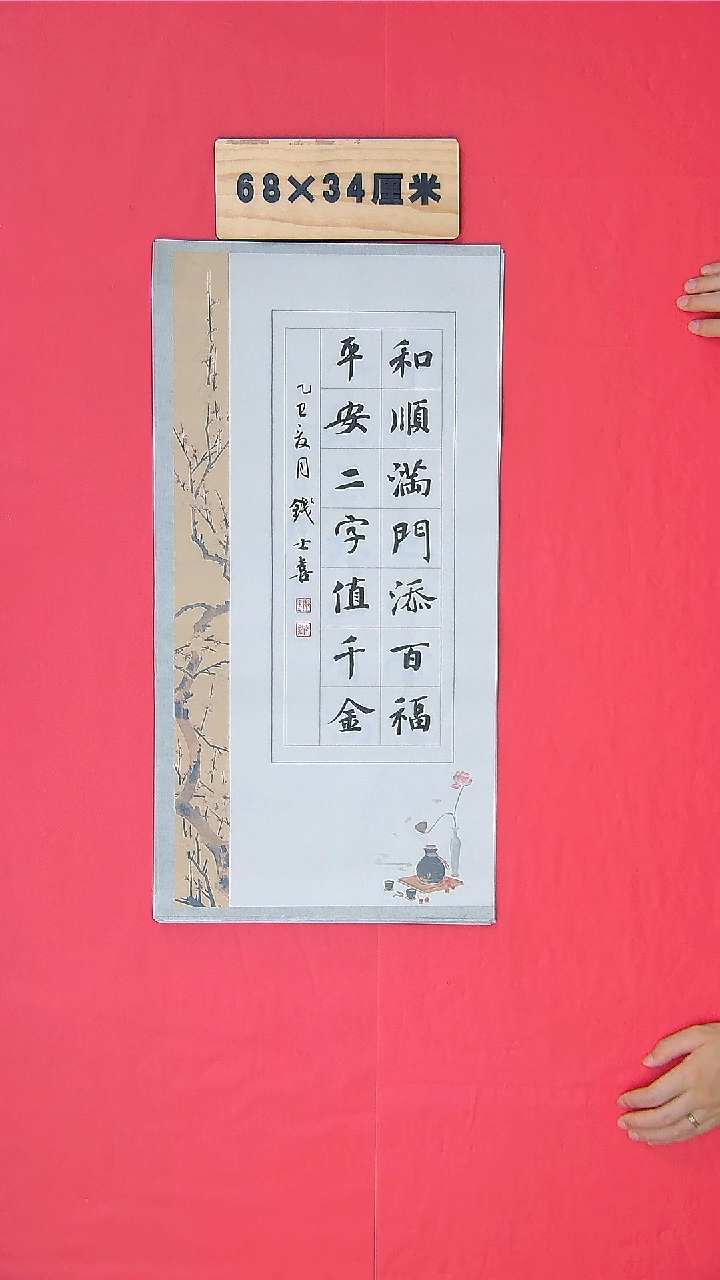 68×34厘米
和順滿門添百福
平安二字值千金
乙巳夏月 錢士喜